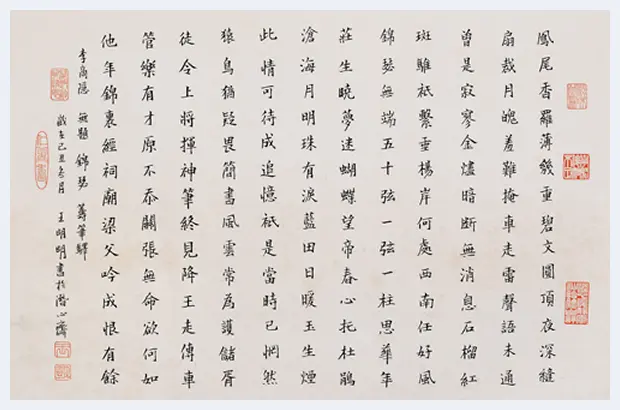 鳳尾香羅薄幾重碧文圓頂夜深縫
扇裁月魄羞難掩車走雷聲語未通
曾是寂寥金燼暗斷無消息石榴紅
斑騅祇繫垂楊岸何處西南任好風
錦瑟無端五十弦一弦一柱思華年
莊生曉夢迷蝴蝶望帝春心托杜鵑
滄海月明珠有淚藍田日暖玉生煙
此情可待成追憶祇是當時已惘然
猿鳥猶疑畏簡書風雲常為護儲胥
徒令上將揮神筆終見降王走傳車
管樂有才原不忝關張無命欲何如
他年錦裏經祠廟梁父吟成恨有餘
李商隱 無題 錦瑟 籌筆驛
歲在己丑冬月 王明明書於潛心齋